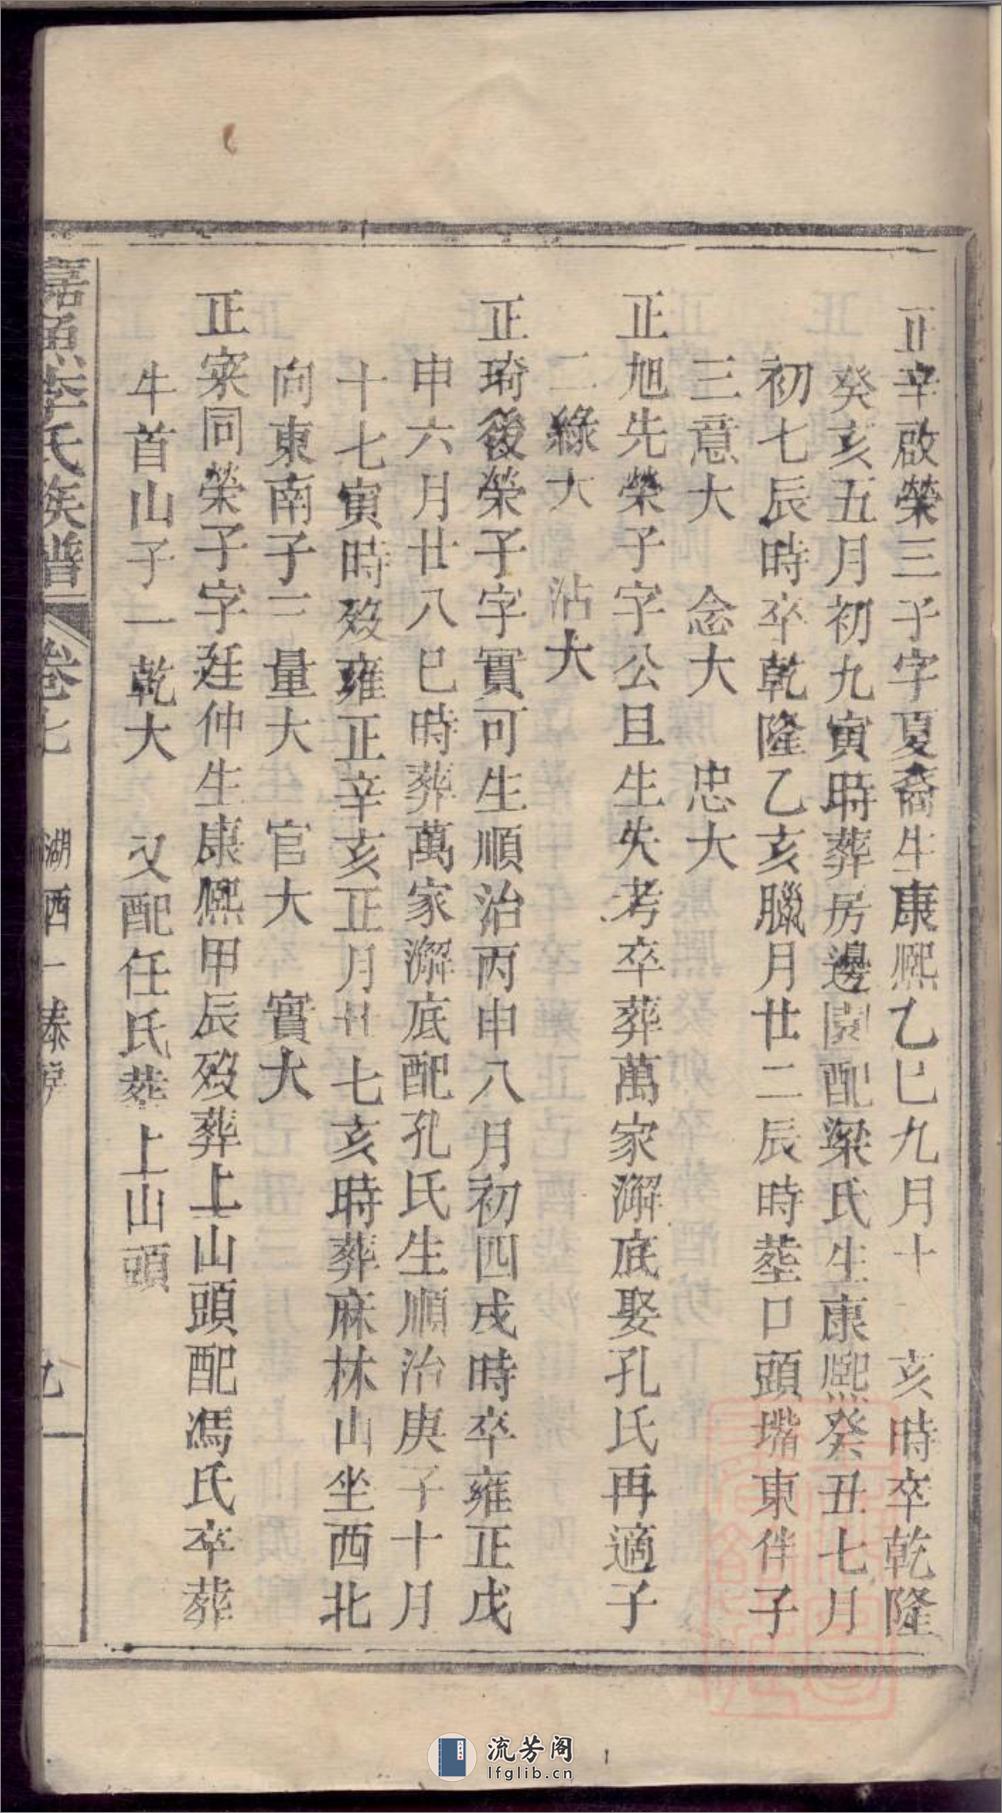 正辛啟榮三子字夏裔生康熙乙巳九月十 亥時卒乾隆
癸亥五月初九寅時葬房邊園配梁氏生康熙癸丑七月
初七辰時卒乾隆乙亥臘月廿二辰時塟口頭嘴東伴子
三意大 念大 忠大
正旭先榮子字公且生失考卒葬萬家澥底娶孔氏再適子
二綠大 沾大
正琦後榮子字實可生順治丙申八月初四戌時卒雍正戊
申六月廿八巳時葬萬家澥底配孔氏生順治庚子十月
十七寅時歿雍正辛亥正月廿七亥時葬麻林山坐西北
向東南子三量大 官大 實大
正寀同榮子字廷仲生康熙甲辰歿葬上山頭配馮氏卒葬
牛首山子一乾大 又配任氏葬上山頭
嘉魚李氏族譜 卷七 湖西一 房 九
流芳阁
lfglib.cn